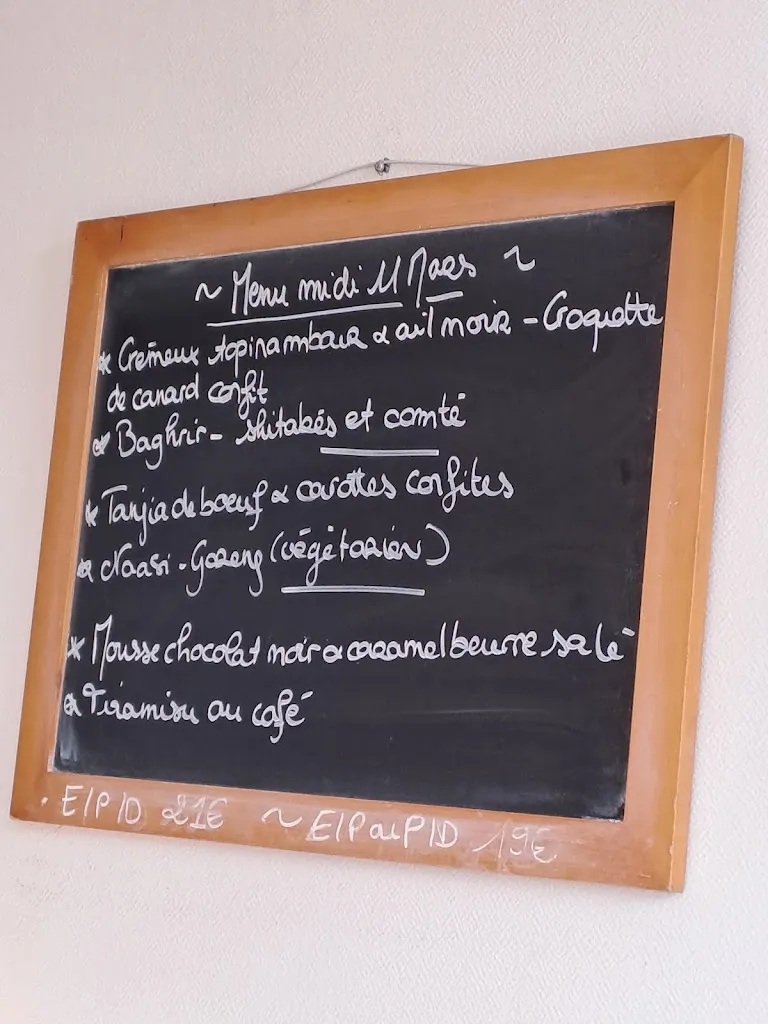 ~ Menu midi 11 Mars ~
* Crémeux topinambour & ail noir - Croquette
de canard confit
* Baghrir - shitakés et comté
* Tanjia de boeuf & carottes confites
* Naasi - Goreng (végétarien)
* Mousse chocolat noir & caramel beurre salé
* Tiramisu au café
. E/P/D 21€ ~ E/P ou P/D 19€